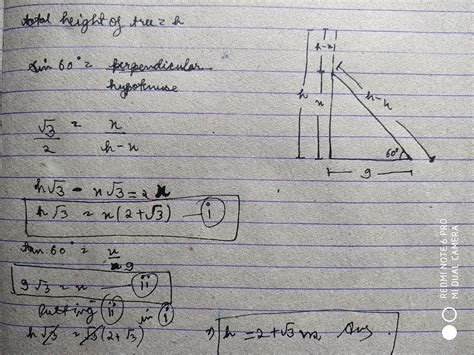 total height of tree = h
sin 60° = perpendicular
hypotenuse
√3/2 = x/h-x
h√3 - x√3 = 2x
h√3 = x(2+√3) — i
tan 60° = x/9
9√3 = x — ii
Putting ii in i
h√3 = √3(2+√3)
⇒ h = 2+√3 m Ans.
h-x
h
x
h-x
60°
9
REDMI NOTE 6 PRO
MI DUAL CAMERA